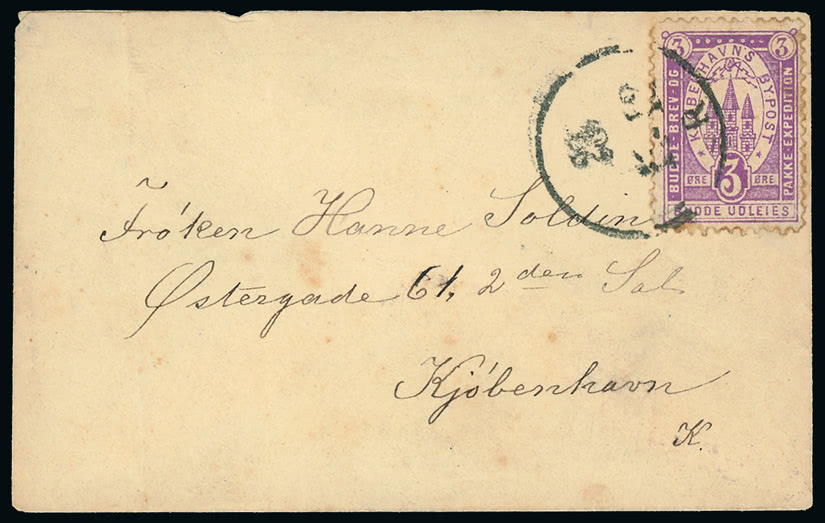 3 3
KJØBENHAVN'S BYPOST
BUDE-BREV-OG
PAKKE-EXPEDITION
ØRE 3 ØRE
UDLEIES
Frøken Hanne Soldin
Østergade 61, 2den Sal
Kjóbenhavn
K.